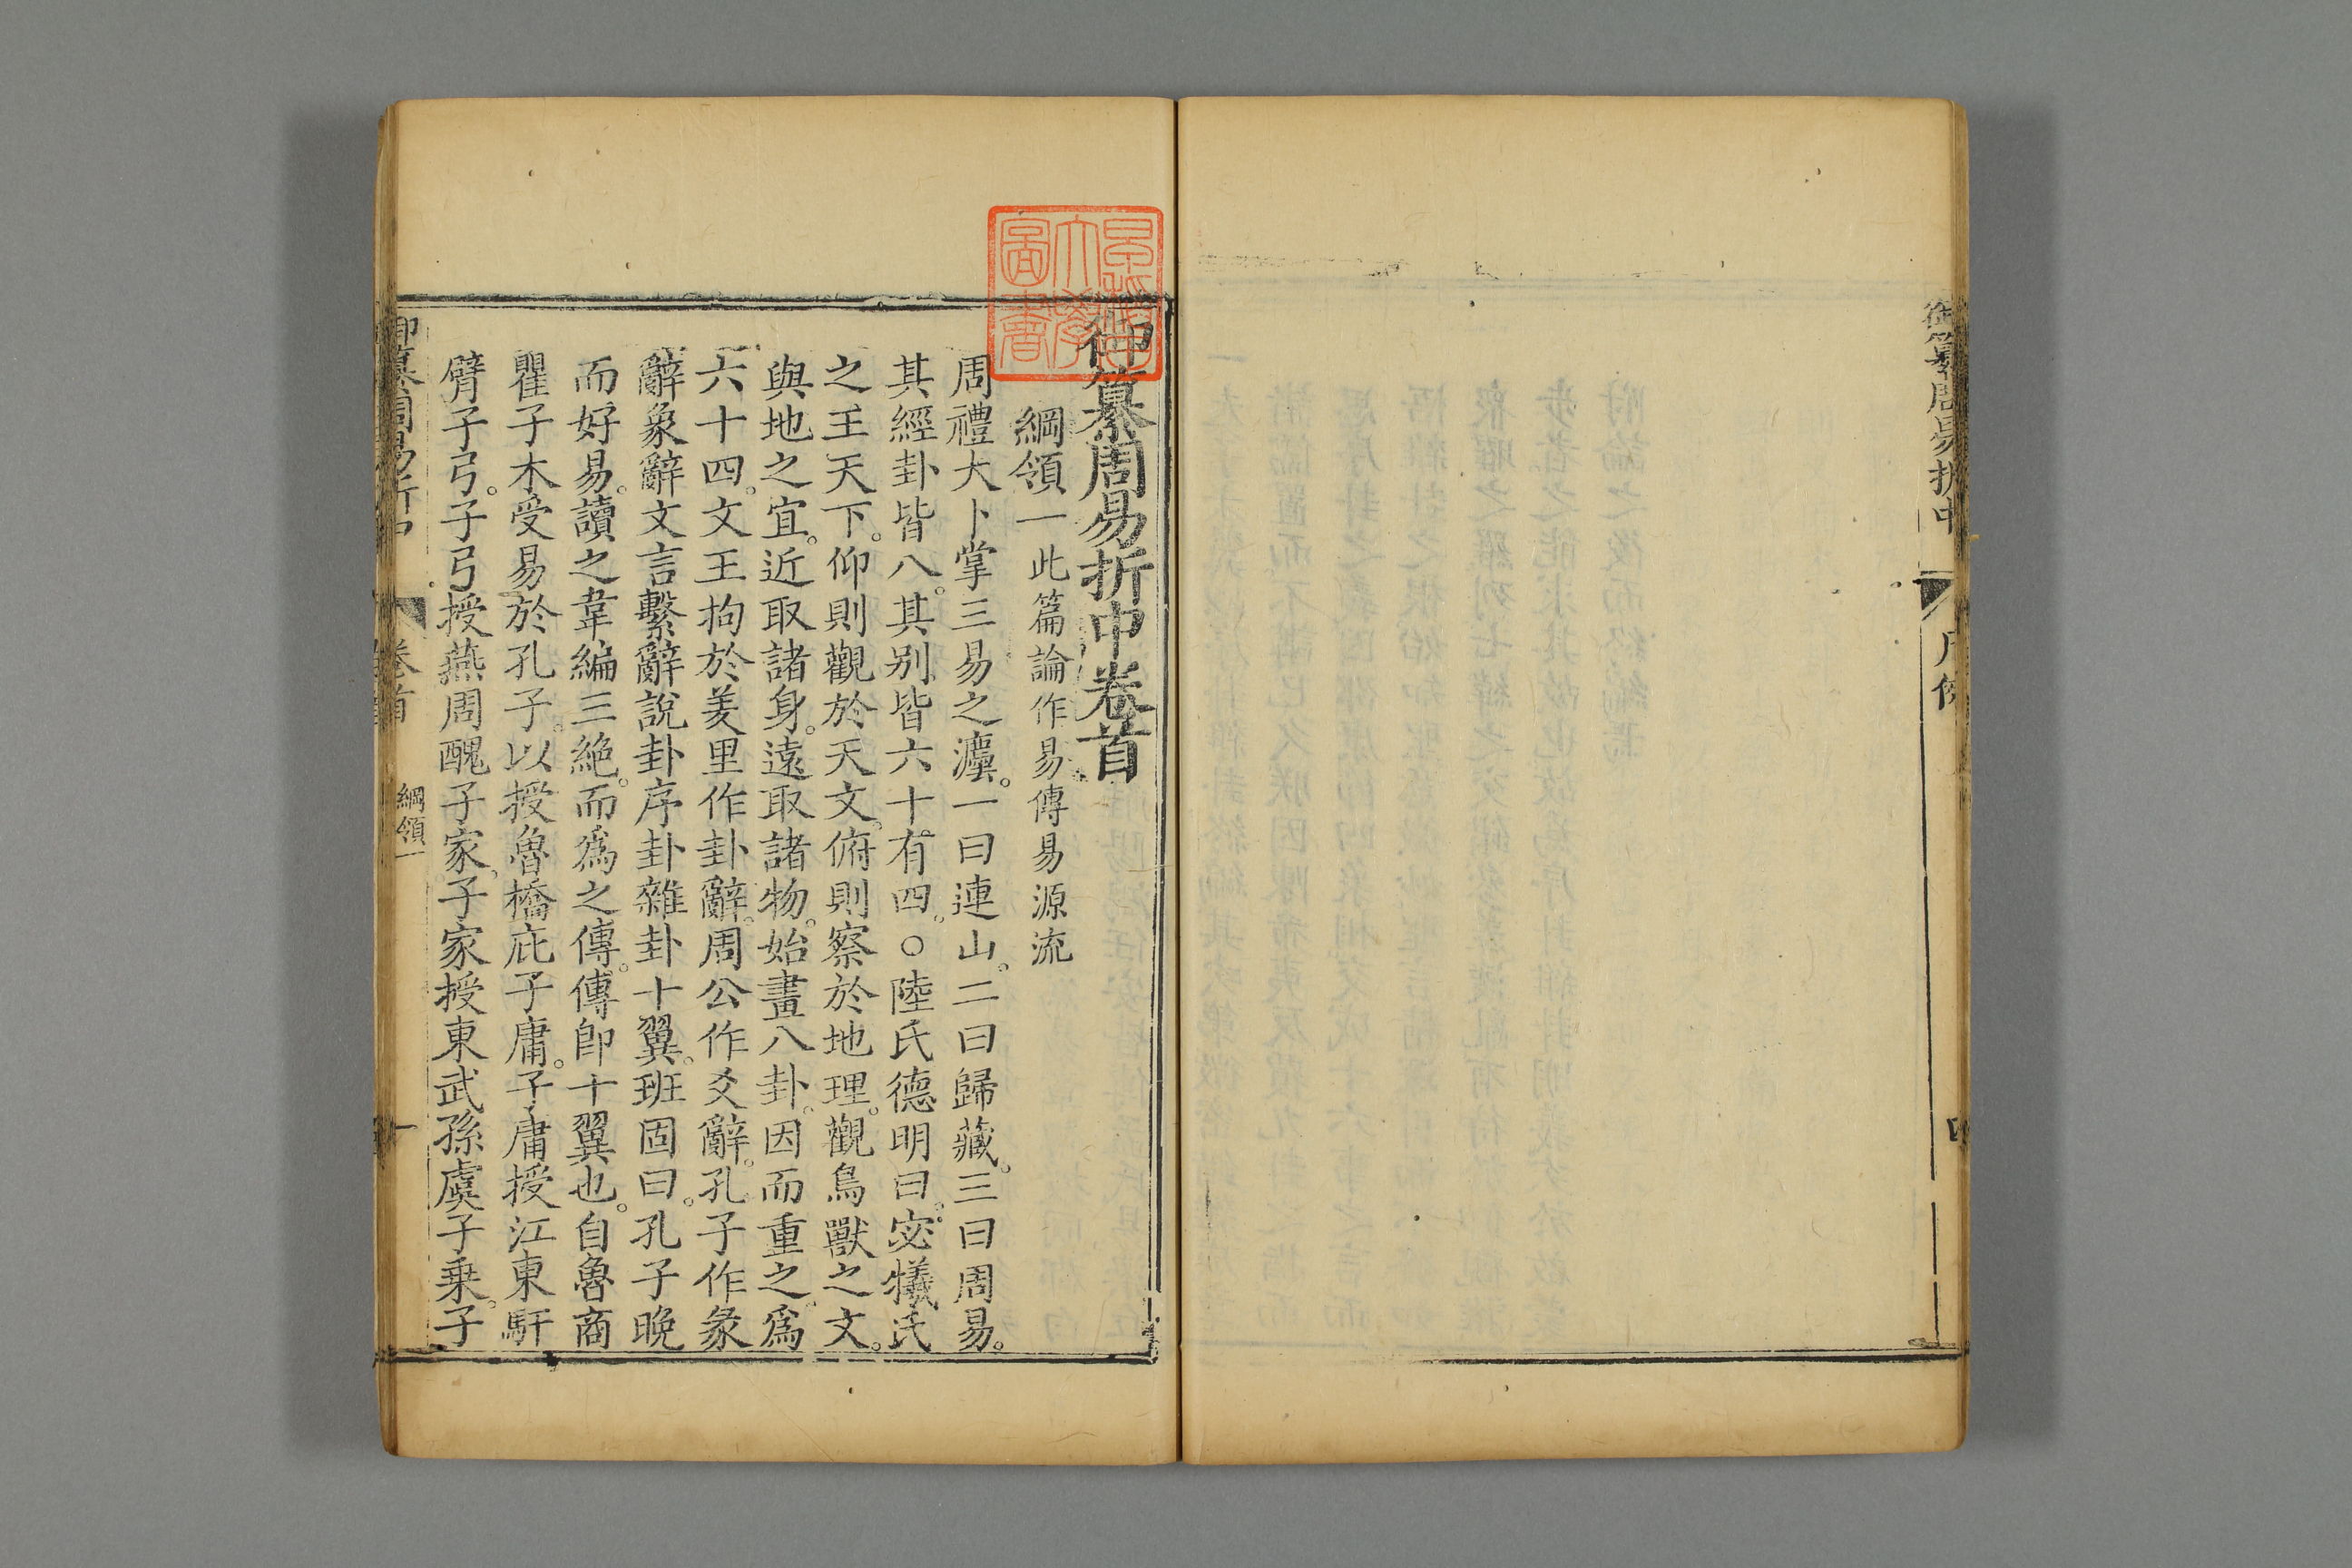 御纂周易折中
凡例
四
御纂周易折中卷首
綱領一此篇論作易傳易源流
周禮大卜掌三易之灋。一曰連山。二曰歸藏。三曰周易。
其經卦皆八。其別皆六十有四。○陸氏德明曰。宓犧氏
之王天下。仰則觀於天文。俯則察於地理。觀鳥獸之文。
與地之宜。近取諸身。遠取諸物。始畫八卦。因而重之。爲
六十四。文王拘於羑里作卦辭。周公作爻辭。孔子作彖
辭象辭文言繫辭說卦序卦雜卦十翼。班固曰。孔子晚
而好易。讀之韋編三絕。而爲之傳。傳卽十翼也。自魯商
瞿子木受易於孔子。以授魯橋庇子庸。子庸授江東馯
臂子弓。子弓授燕周醜子家。子家授東武孫虞子乗。子
御纂周易折中
卷首
綱領一
一
圖書